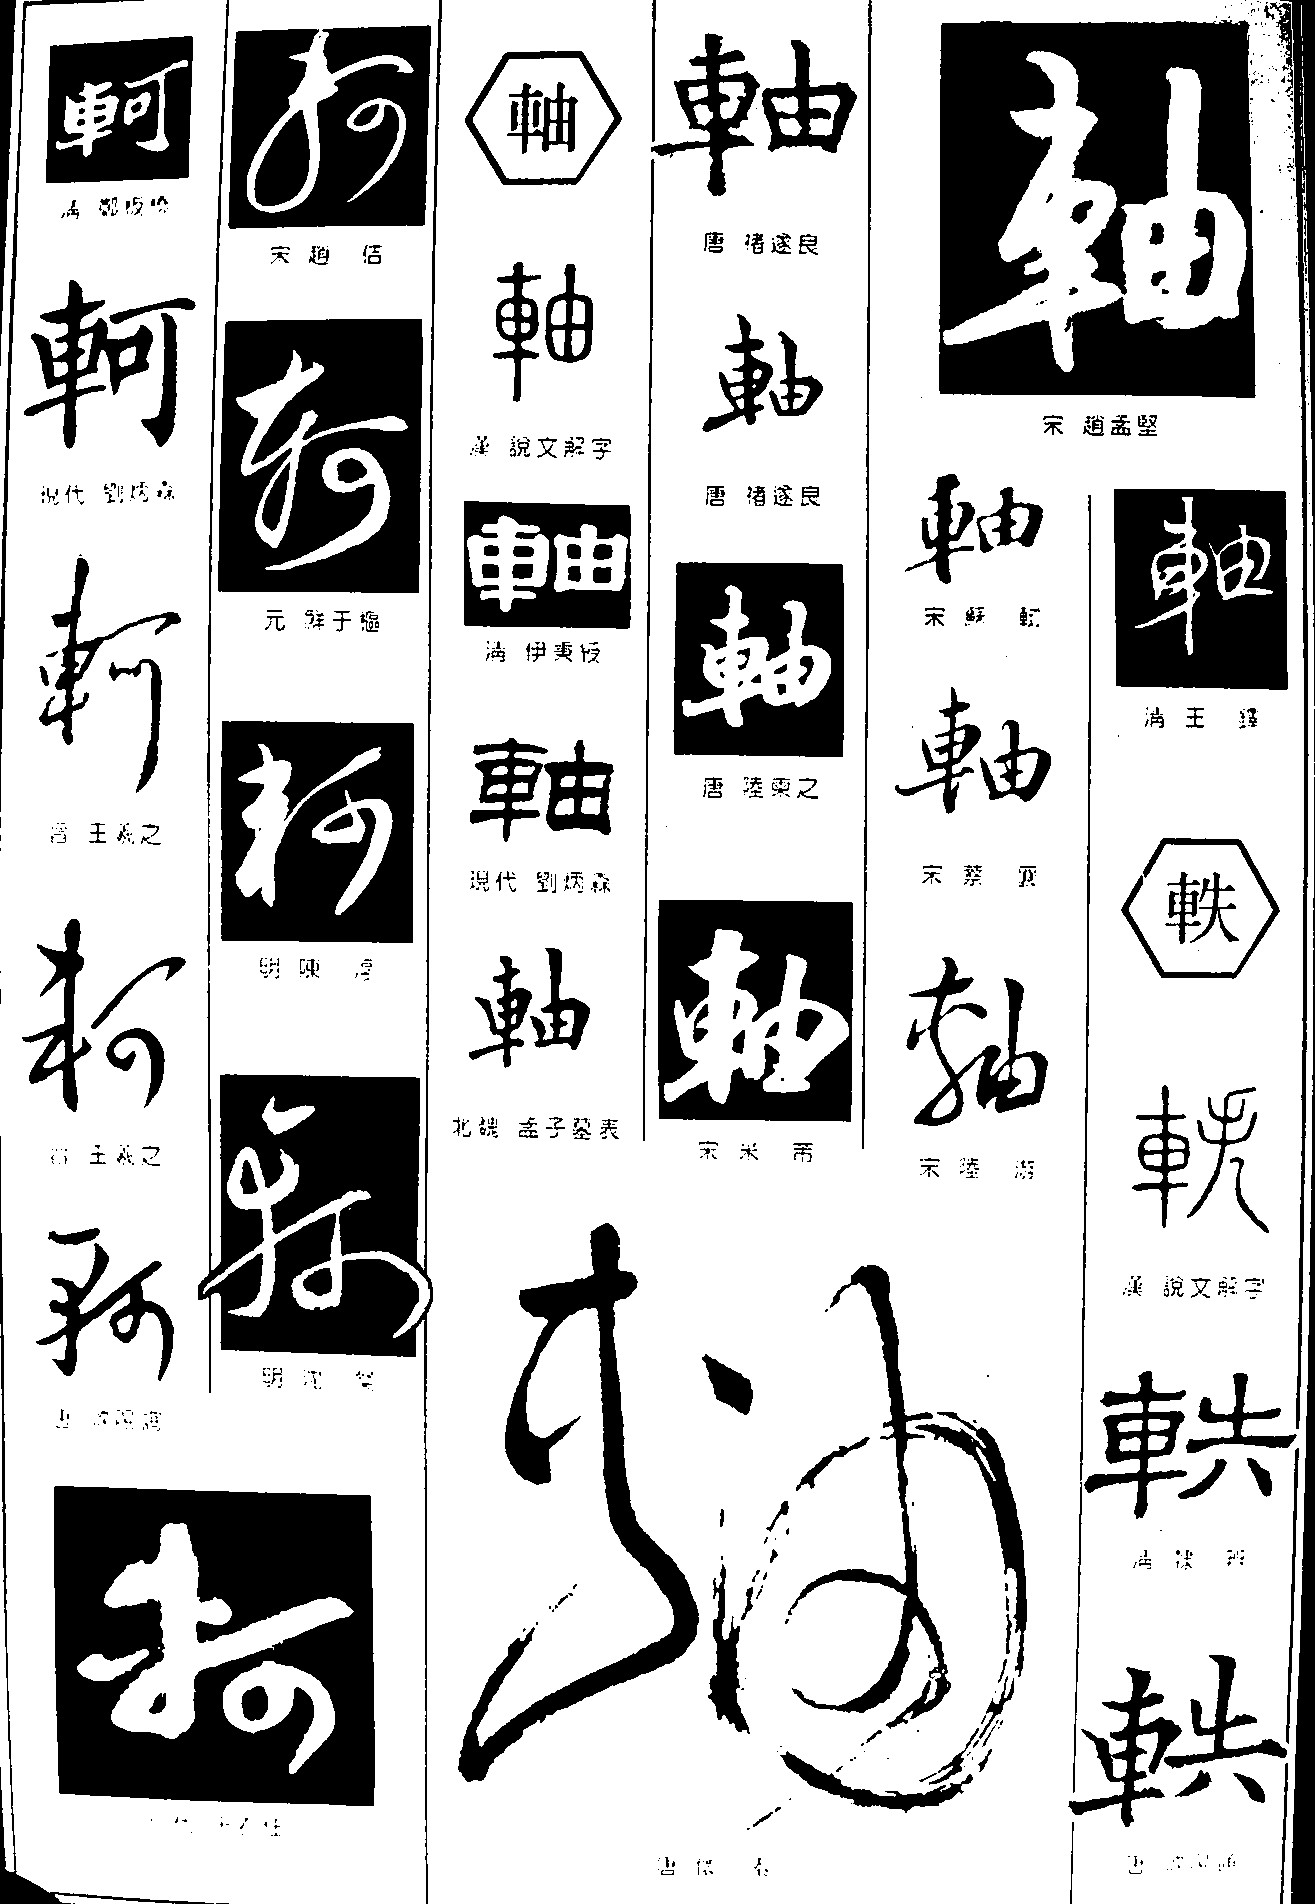 軻
清 鄭板橋
軻
現代 劉炳森
軻
晉 王羲之
軻
晉 王羲之
軻
軻
軻
宋 趙佶
軻
元 鮮于樞
軻
明 陳淳
軻
明 沈粲
軸
軸
漢 說文解字
軸
清 伊秉綬
軸
現代 劉炳森
軸
北魏 孟子墓表
軸
唐 褚遂良
軸
唐 褚遂良
軸
唐 陸柬之
軸
宋 米芾
軸
唐 懷素
軸
宋 趙孟堅
軸
宋 蘇軾
軸
宋 蔡襄
軸
宋 陸游
軸
清 王鐸
軼
軼
漢 說文解字
軼
軼
唐